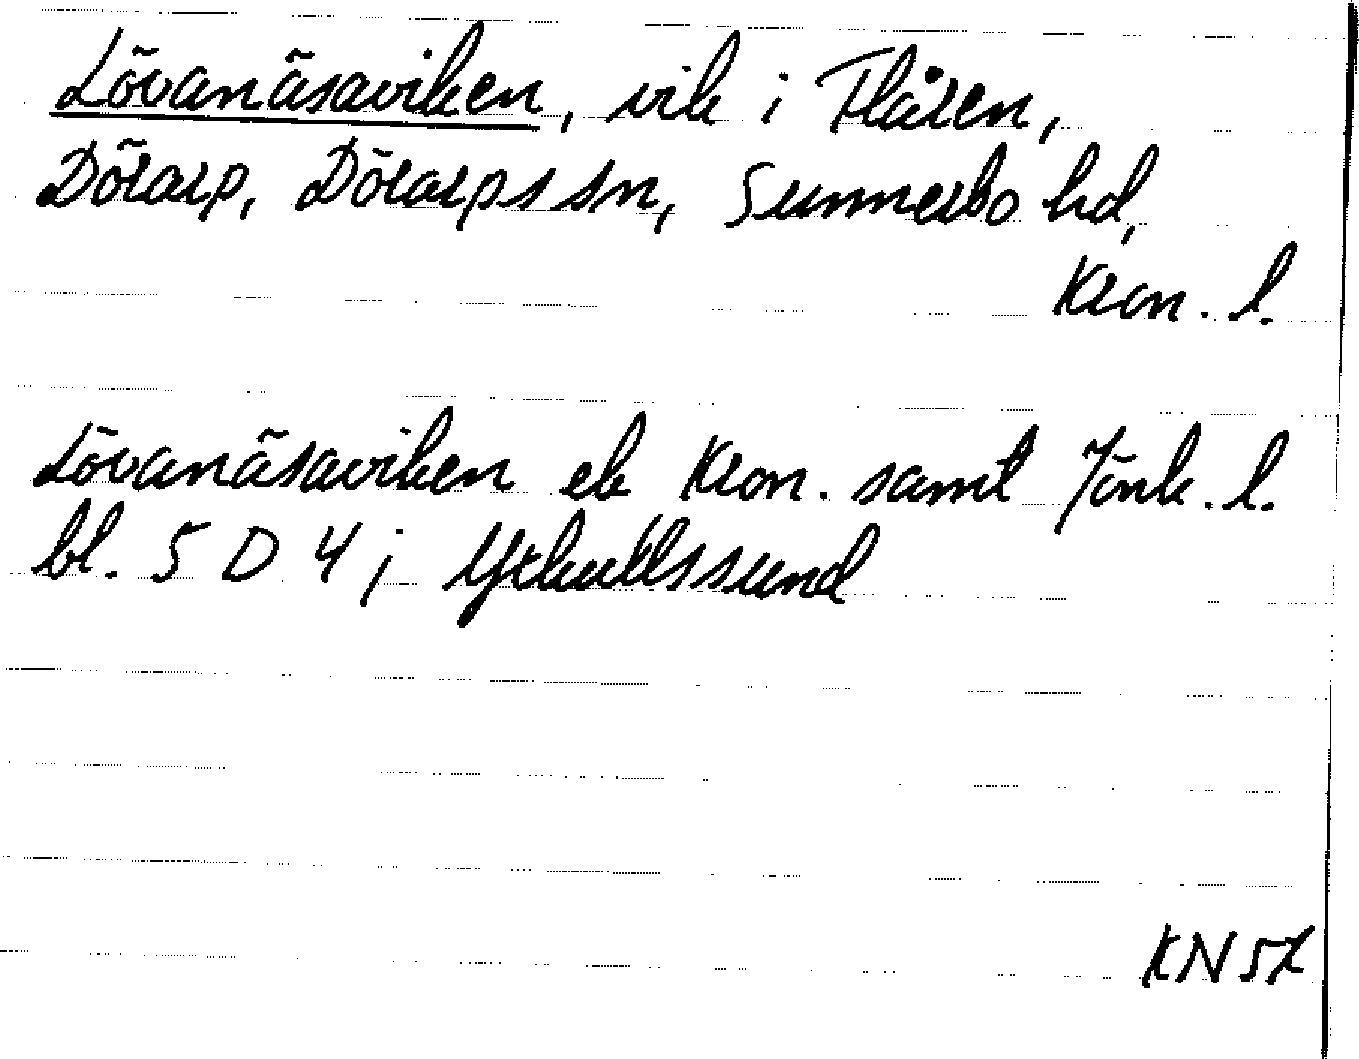 Lövanäsaviken, vik i Flåren,
Dörarp, Dörarps sn, Sunnerbo hd,
Kron. l.
Lövanäsaviken ek Kron. samt Jönk. l.
bl. 5 D 4 ; Ytkullssund
KN 57